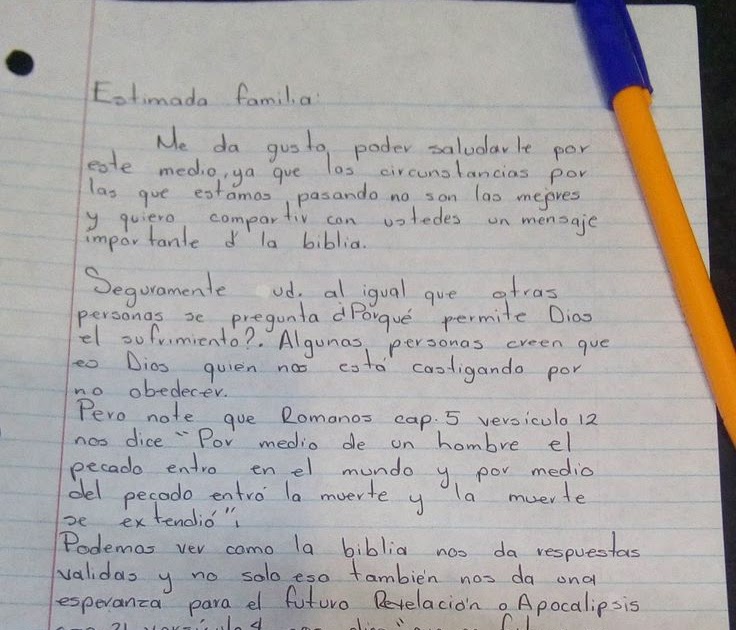 Estimada familia:
Me da gusto poder saludarle por
este medio, ya que las circunstancias por
las que estamos pasando no son las mejores
y quiero compartir con ustedes un mensaje
importante d' la biblia.
Seguramente ud. al igual que otras
personas se pregunta ¿Porqué permite Dios
el sufrimiento?. Algunas personas creen que
es Dios quien nos está castigando por
no obedecer.
Pero note que Romanos cap. 5 versiculo 12
nos dice "Por medio de un hombre el
pecado entro en el mundo y por medio
del pecado entró la muerte y la muerte
se extendió";
Podemos ver como la biblia nos da respuestas
validas y no solo eso también nos da una
esperanza para el futuro Revelación o Apocalipsis
21 versículo 4